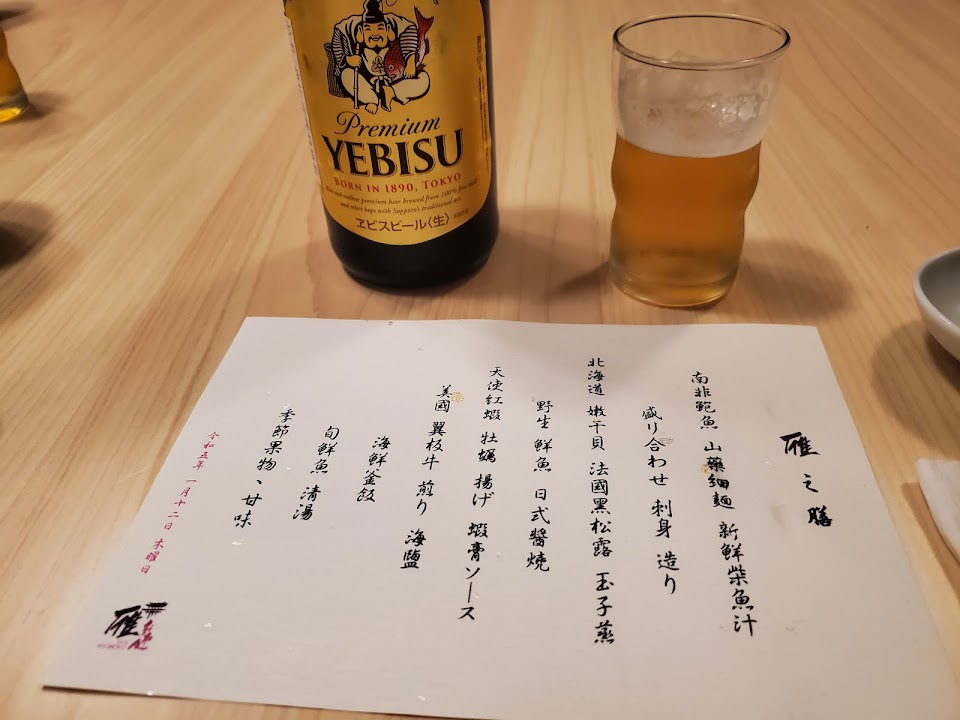 Premium
YEBISU
BORN IN 1890, TOKYO
and select hops with Sapporo's traditional art.
ヱビスビール〈生〉
雁之膳
南非鮑魚 山藥細麵 新鮮柴魚汁
盛り合わせ 刺身 造り
北海道 嫩干貝 法國黑松露 玉子蒸
野生 鮮魚 日式醬燒
天使紅蝦 牡蠣 揚げ 蝦膏ソース
美國 翼板牛 煎り 海鹽
海鮮釜飯
旬鮮魚 清湯
季節果物、甘味
令和五年 一月十二日 木曜日
雁